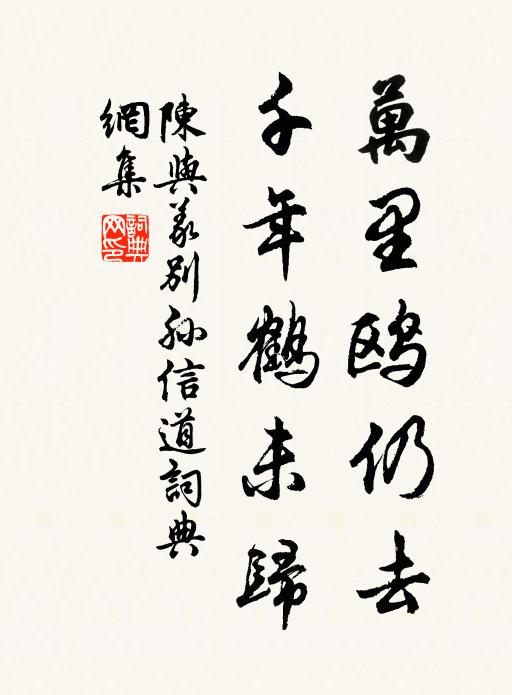 萬里鸥仍去
千年鶴未歸
陳與義别孫信道詞典
網集
詞典
网印